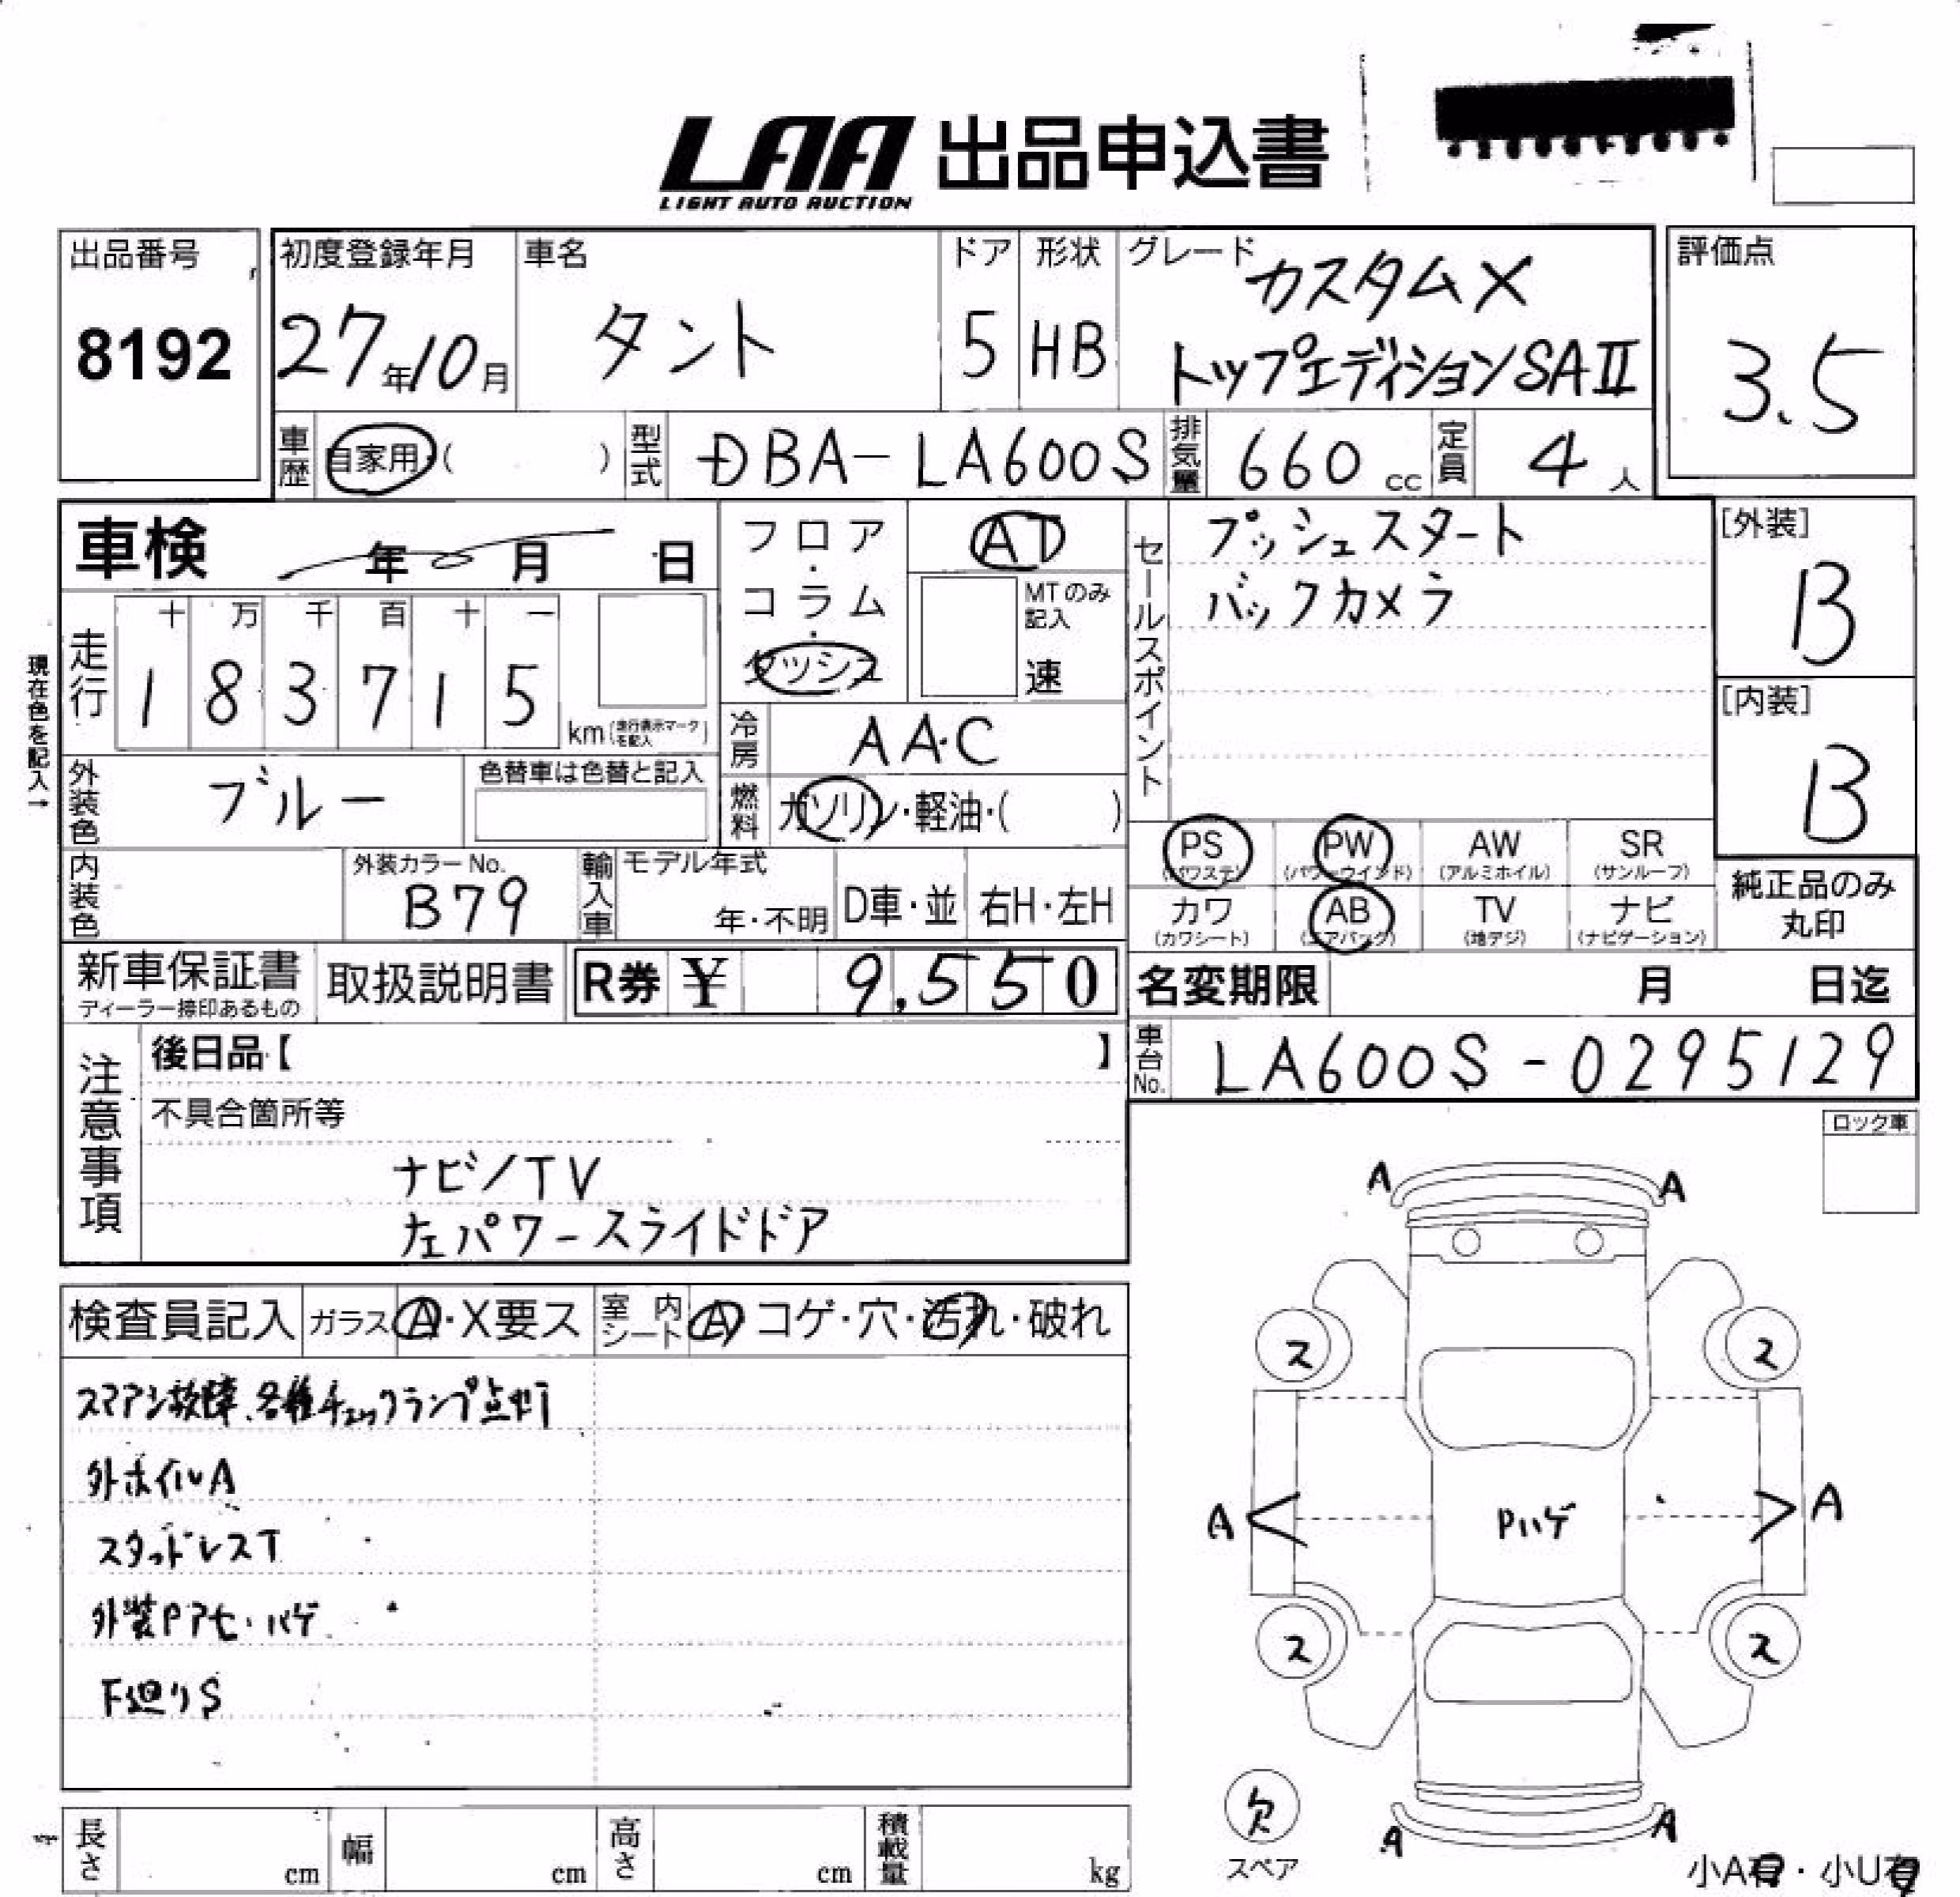 LAA 出品申込書
LIGHT AUTO AUCTION
出品番号
8192
初度登録年月
27年10月
車名
タント
ドア
5
形状
HB
グレード
カスタムX
トップエディションSAⅡ
評価点
3.5
車歴
自家用・( )
型式
DBA-LA600S
排気量
660 cc
定員
4 人
車検 年 月 日
フロア・コラム・ダッシュ
AT
MTのみ記入
速
セールスポイント
プッシュスタート
バックカメラ
[外装]
B
[内装]
B
現在色を記入→
走行
十 万 千 百 十 一
1 8 3 7 1 5
km(走行表示マークを記入)
冷房
AAC
燃料
ガソリン・軽油・( )
外装色
ブルー
色替車は色替と記入
内装色
外装カラーNo.
B79
輸入車
モデル年式
年・不明
D車・並
右H・左H
PS
(パワステ)
PW
(パワーウインド)
AW
(アルミホイル)
SR
(サンルーフ)
カワ
(カワシート)
AB
(エアバッグ)
TV
(地デジ)
ナビ
(ナビゲーション)
純正品のみ
丸印
新車保証書
ディーラー捺印あるもの
取扱説明書
R券 ¥ 9,550
名変期限 月 日迄
車台No.
LA600S-0295129
注意事項
後日品【 】
不具合箇所等
ナビ/TV
左パワースライドドア
ロック車
検査員記入
ガラス
A・X要ス
室内シート
A コゲ・穴・汚れ・破れ
スマアシ故障、各種チェックランプ点灯
外ホイルA
スタッドレスT
外装Pアセ・ハゲ
F廻りS
A A
ス ス
A Pハゲ A
ス ス
欠
スペア
A A
小A有・小U有
長さ cm
幅 cm
高さ cm
積載量 kg